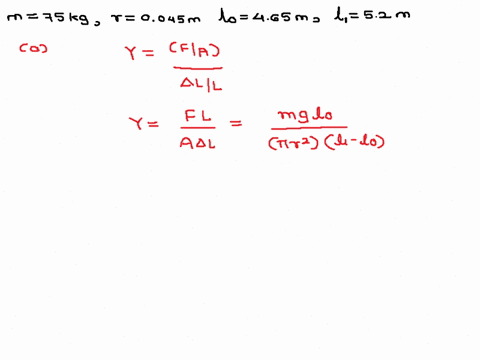 m = 75 kg, r = 0.045 m l0 = 4.65 m, l1 = 5.2 m
(a) Y = (F/A) / ΔL/L
Y = FL / AΔL = mgl0 / (πr²)(l1-l0)